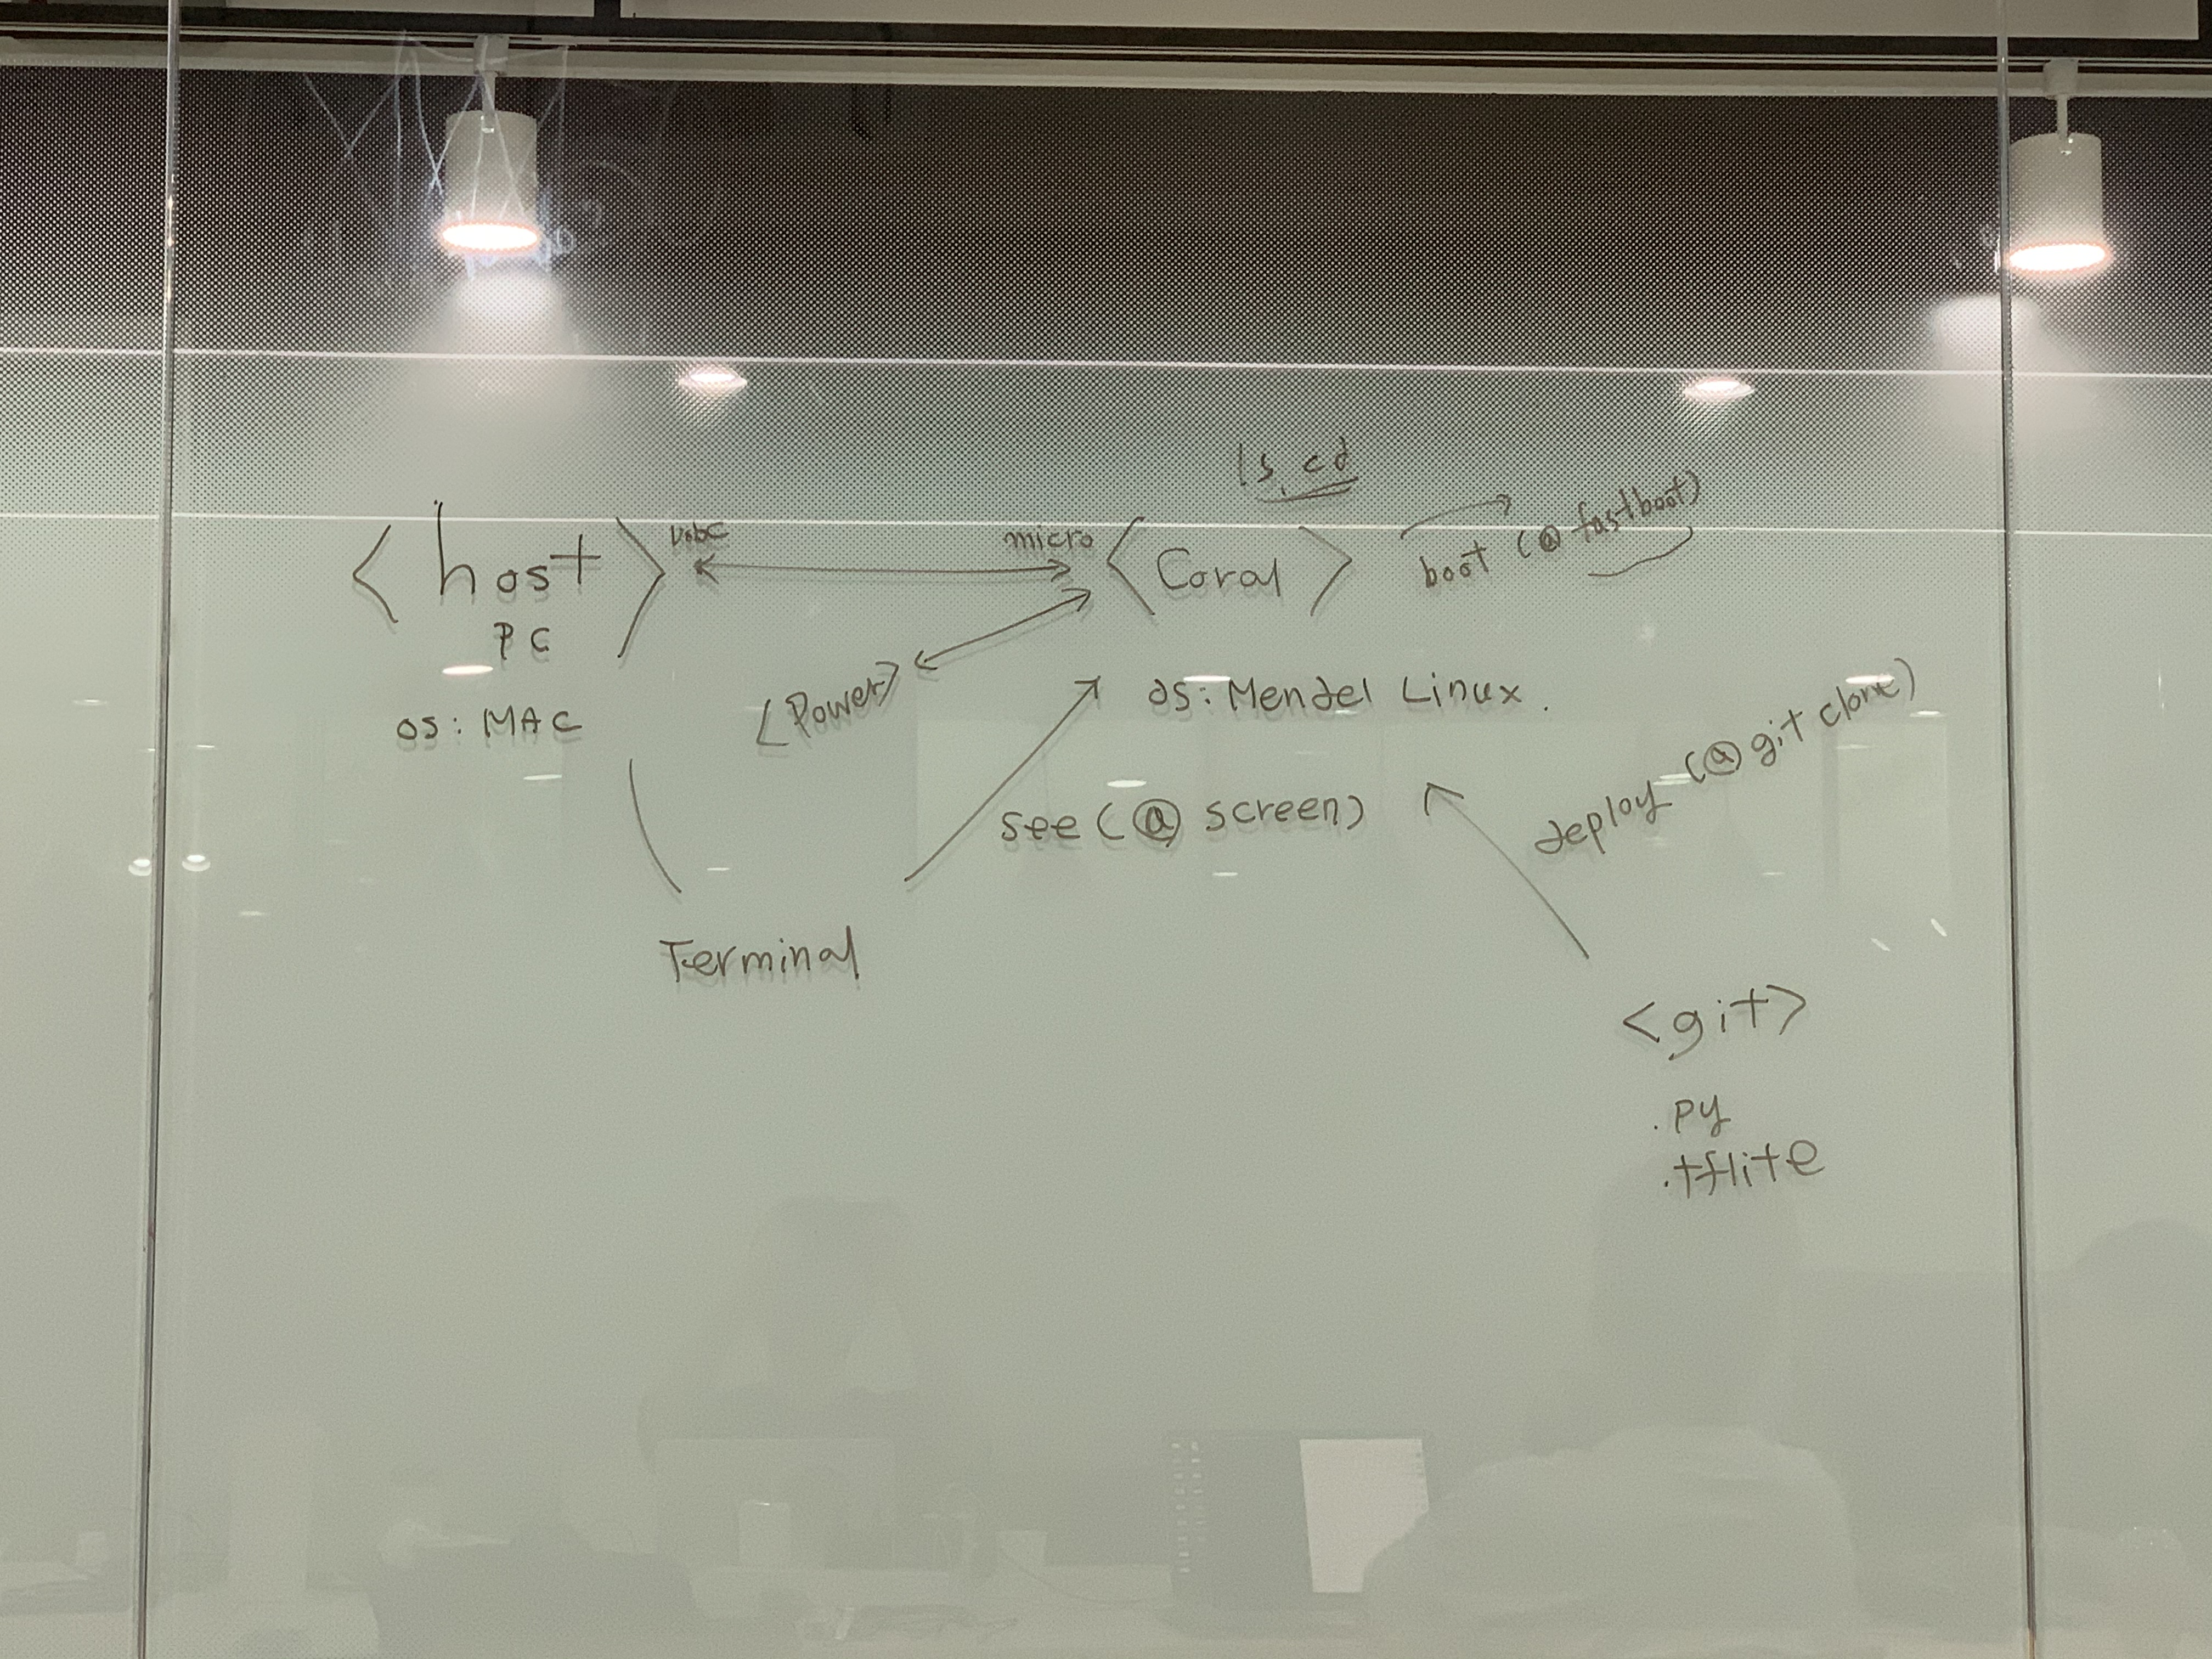 ls, cd
<host>
PC
OS: MAC
usbC
micro
<Coral>
boot (@ fastboot)
<Power>
OS: Mendel Linux.
see (@ screen)
deploy (@ git clone)
Terminal
<git>
.py
.tflite